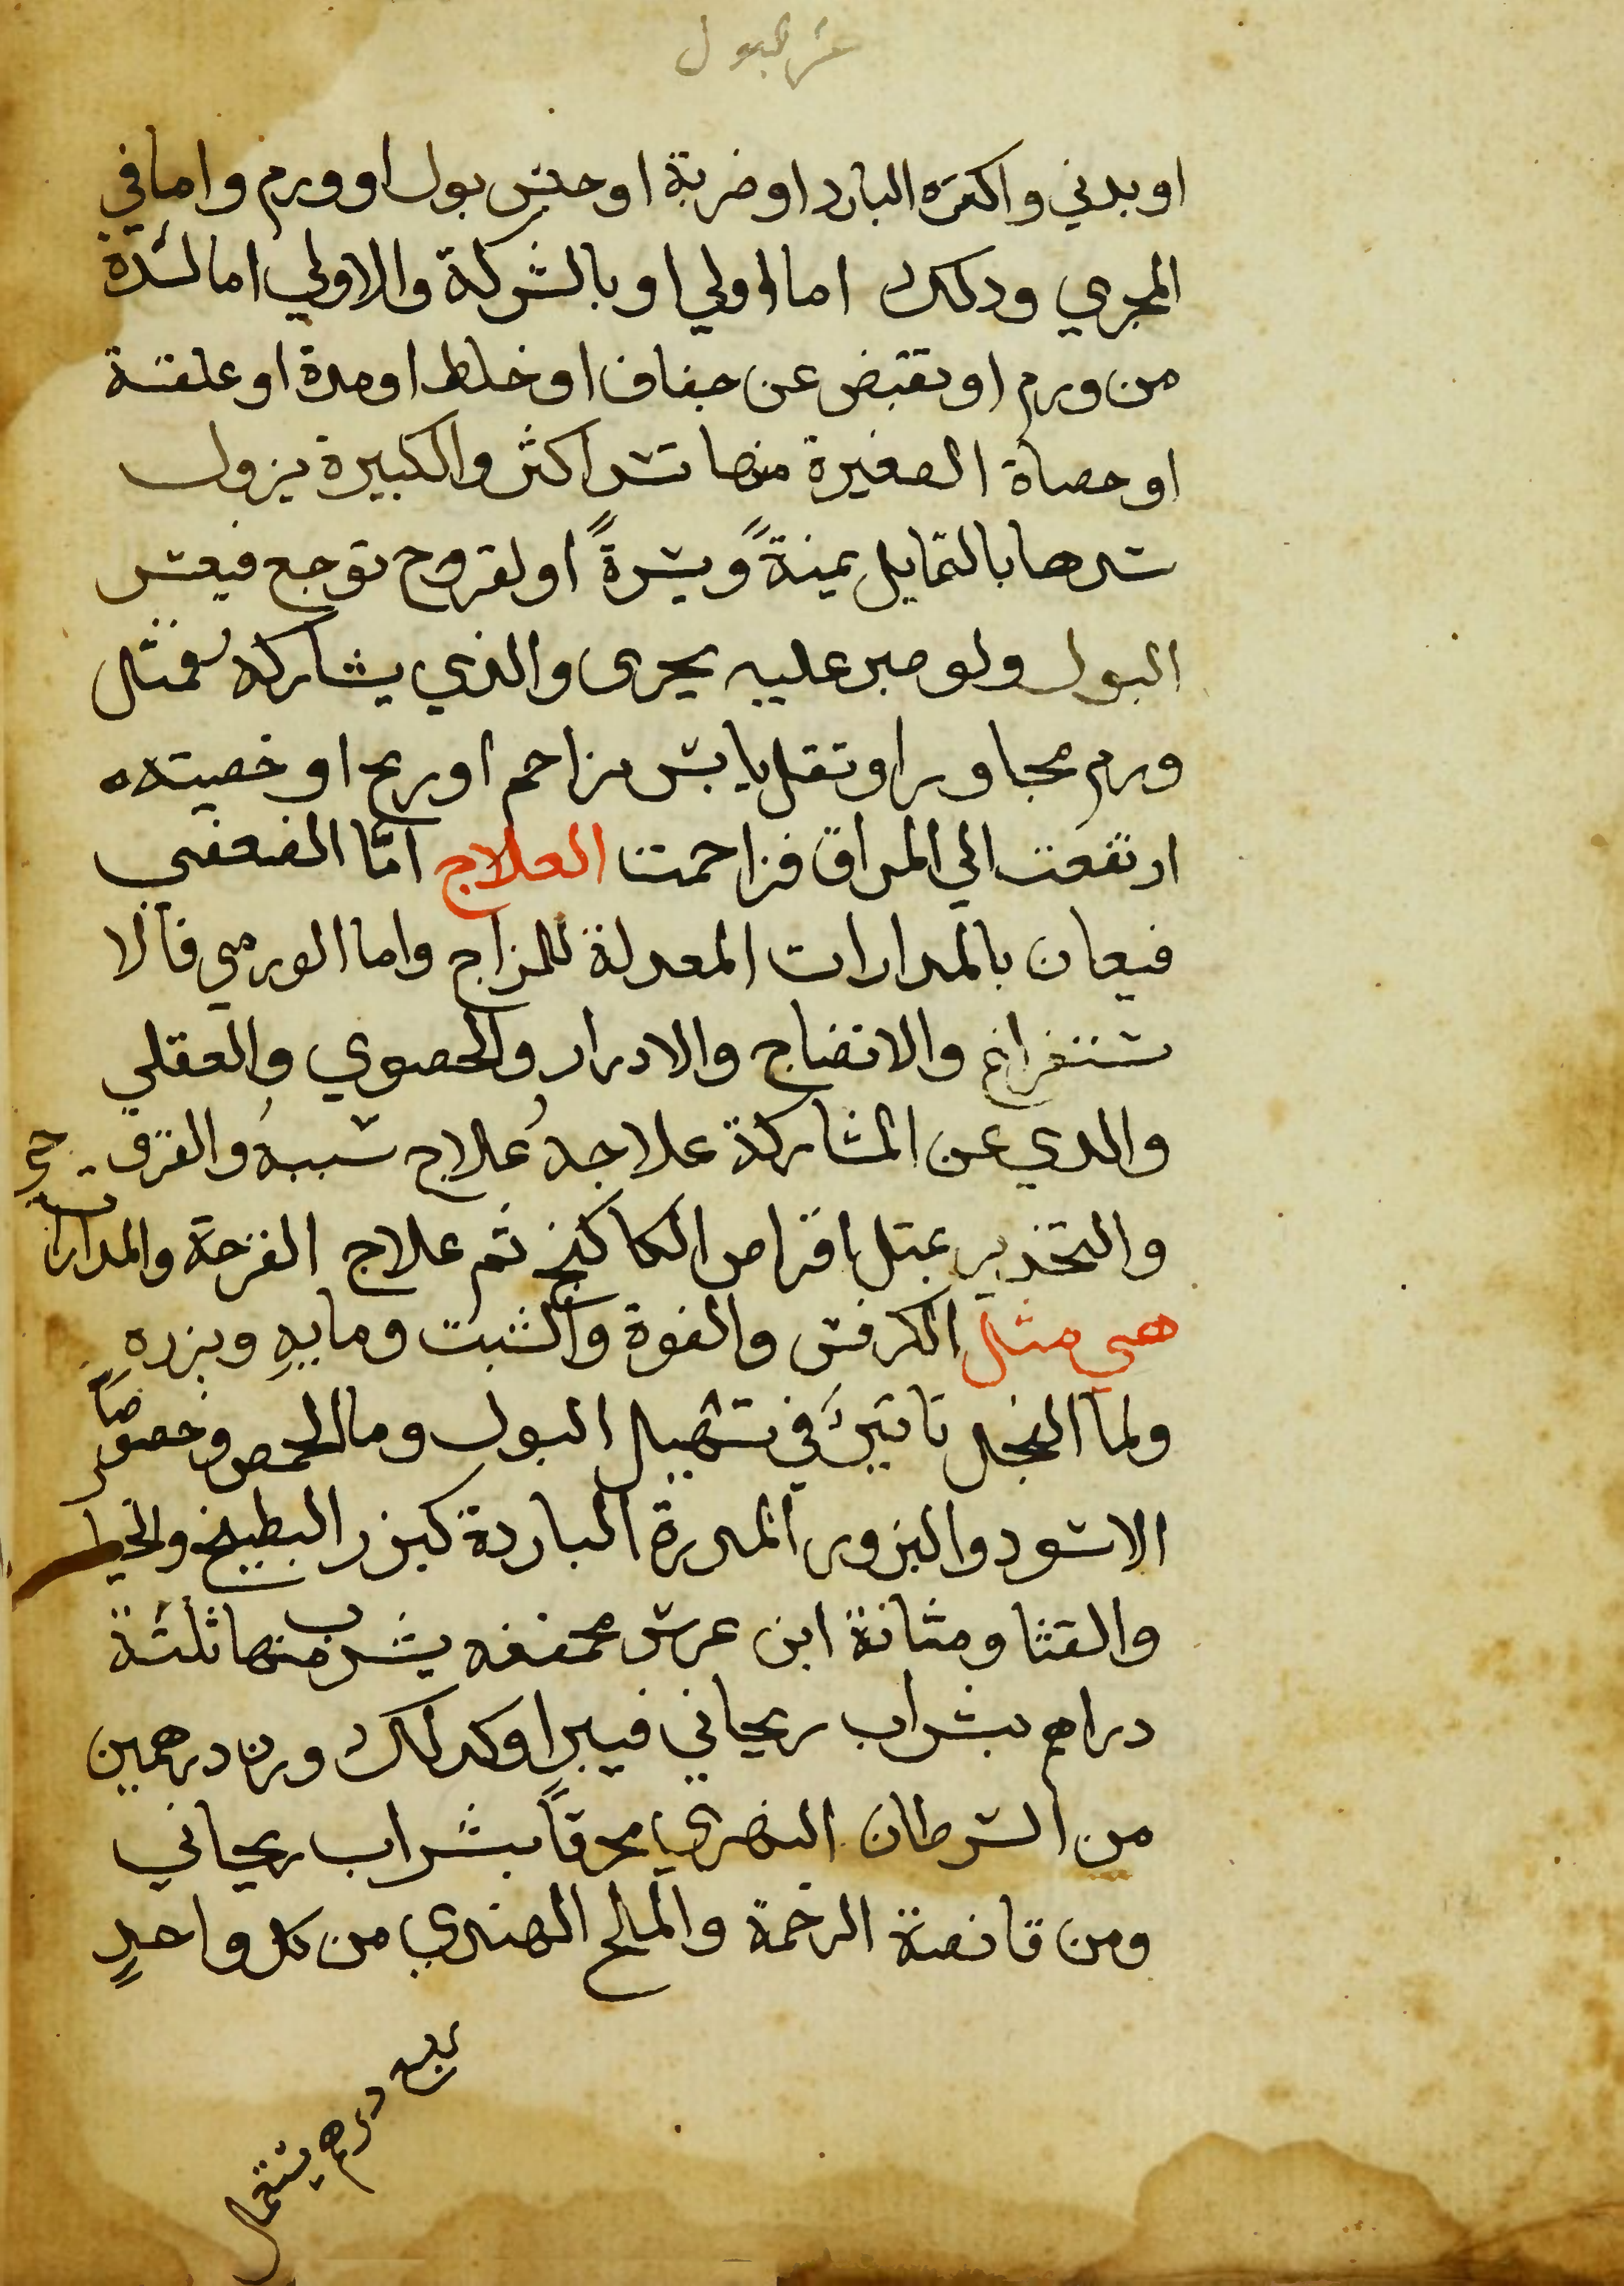 عسر البول
او بدني واكثره البارد او ضربة او حبس بول او ورم واما في
المجري وذلك اما اولي او بالشركة والاولي اما لسدة
من ورم او تقبض عن جفاف او خلط او مدة او علقة
او حصاة الصغيرة منها تسد اكثر والكبيرة يزول
سدها بالتمايل يمنةً ويسرةً او لقروح توجع فيعسر
البول ولو صبر عليه يجرى والذي يشاركه فمثل
ورم مجاور او ثقل يابس مزاحم او ريح او خصيته
ارتفعت الي المراق فزاحمت العلاج امّا الضعفي
فيعان بالمدارات المعدلة للمزاج واما الورمي فالا
ستفراغ والانضاج والادرار والحصوي والعقلي
والذي عن المشاركة علاجهُ علاج سببهُ والقرو حي
والتخدير بمثل اقراص الكاكنج ثم علاج القرحة والمدارات
هي مثل الكرفس والفوة والشبت ومايهِ وبزره
ولما الفجل تاثيرٌ في تسهيل البول وما الحمص وخصوصًا
الاسود والبزور المدرة الباردة كبزر البطيخ والخيار
والقثا ومثانة ابن عرس مجففه يشرب منها ثلثة
دراهم بشراب ريحاني فيبرا وكذلك وزن درهمين
من السرطان النهري محرقاً بشراب ريحاني
ومن قانصة الرخمة والملح الهندي من كل واحدٍ
درهم يستعمل